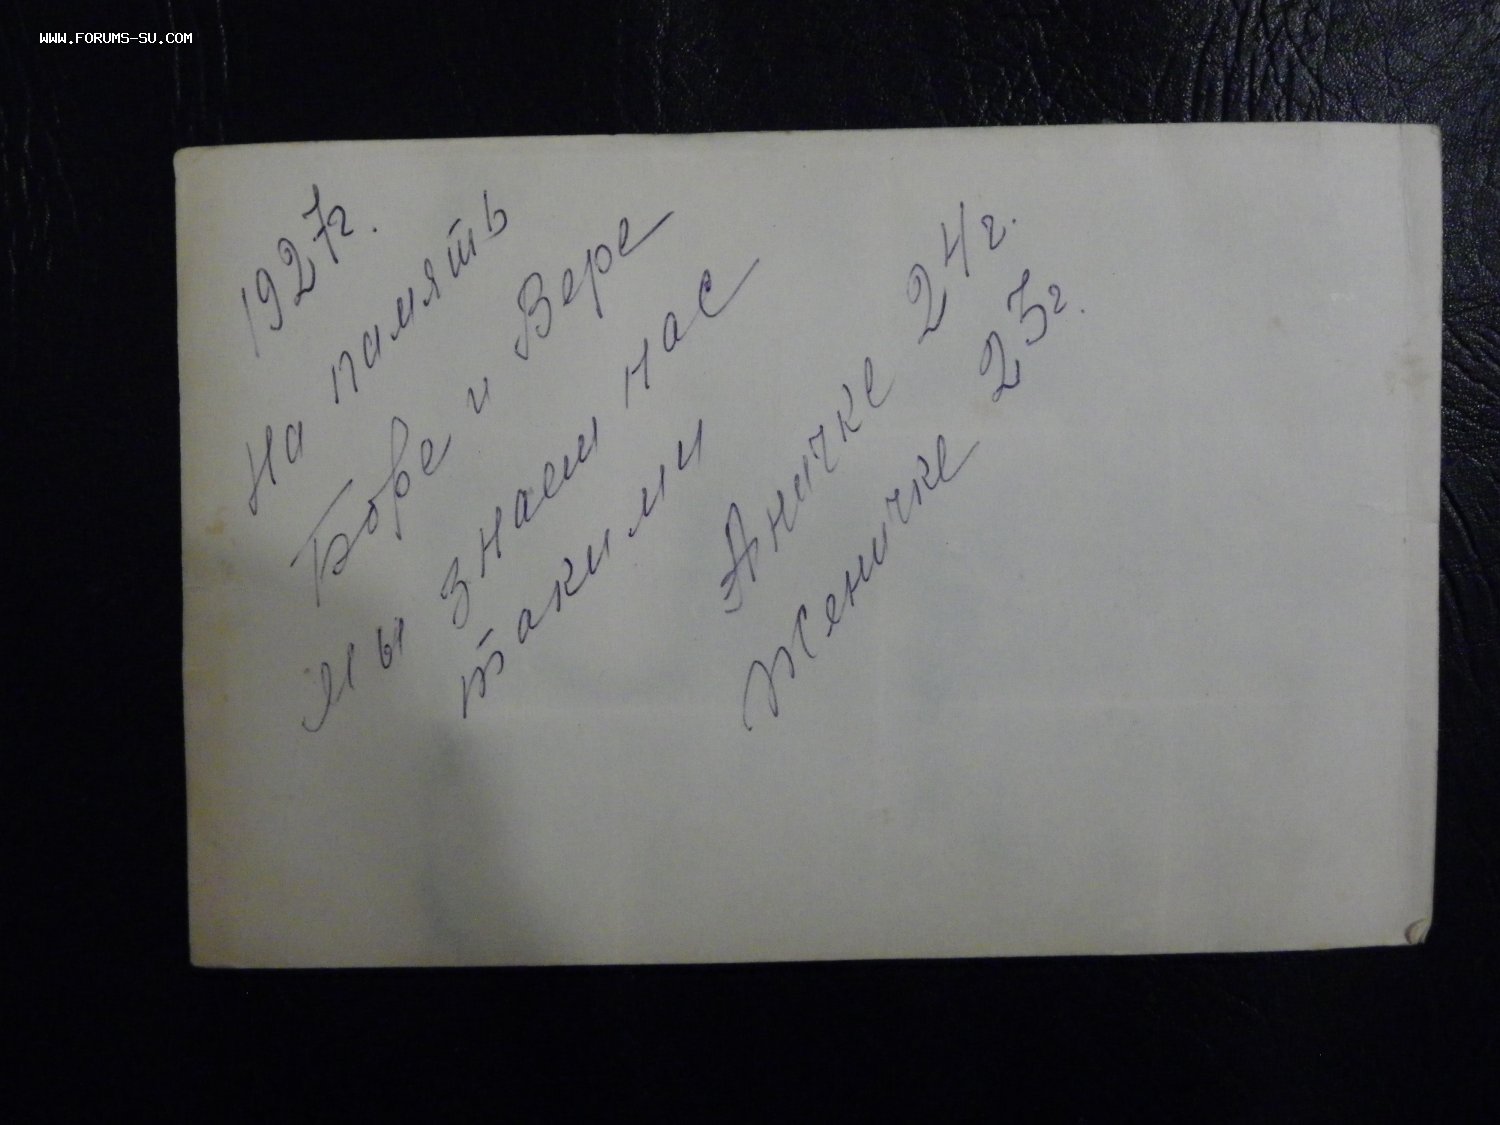 WWW.FORUMS-SU.COM
1927г.
На память
Боре и Вере
мы знаем нас
такими
Аничке 24г.
Женичке 23г.